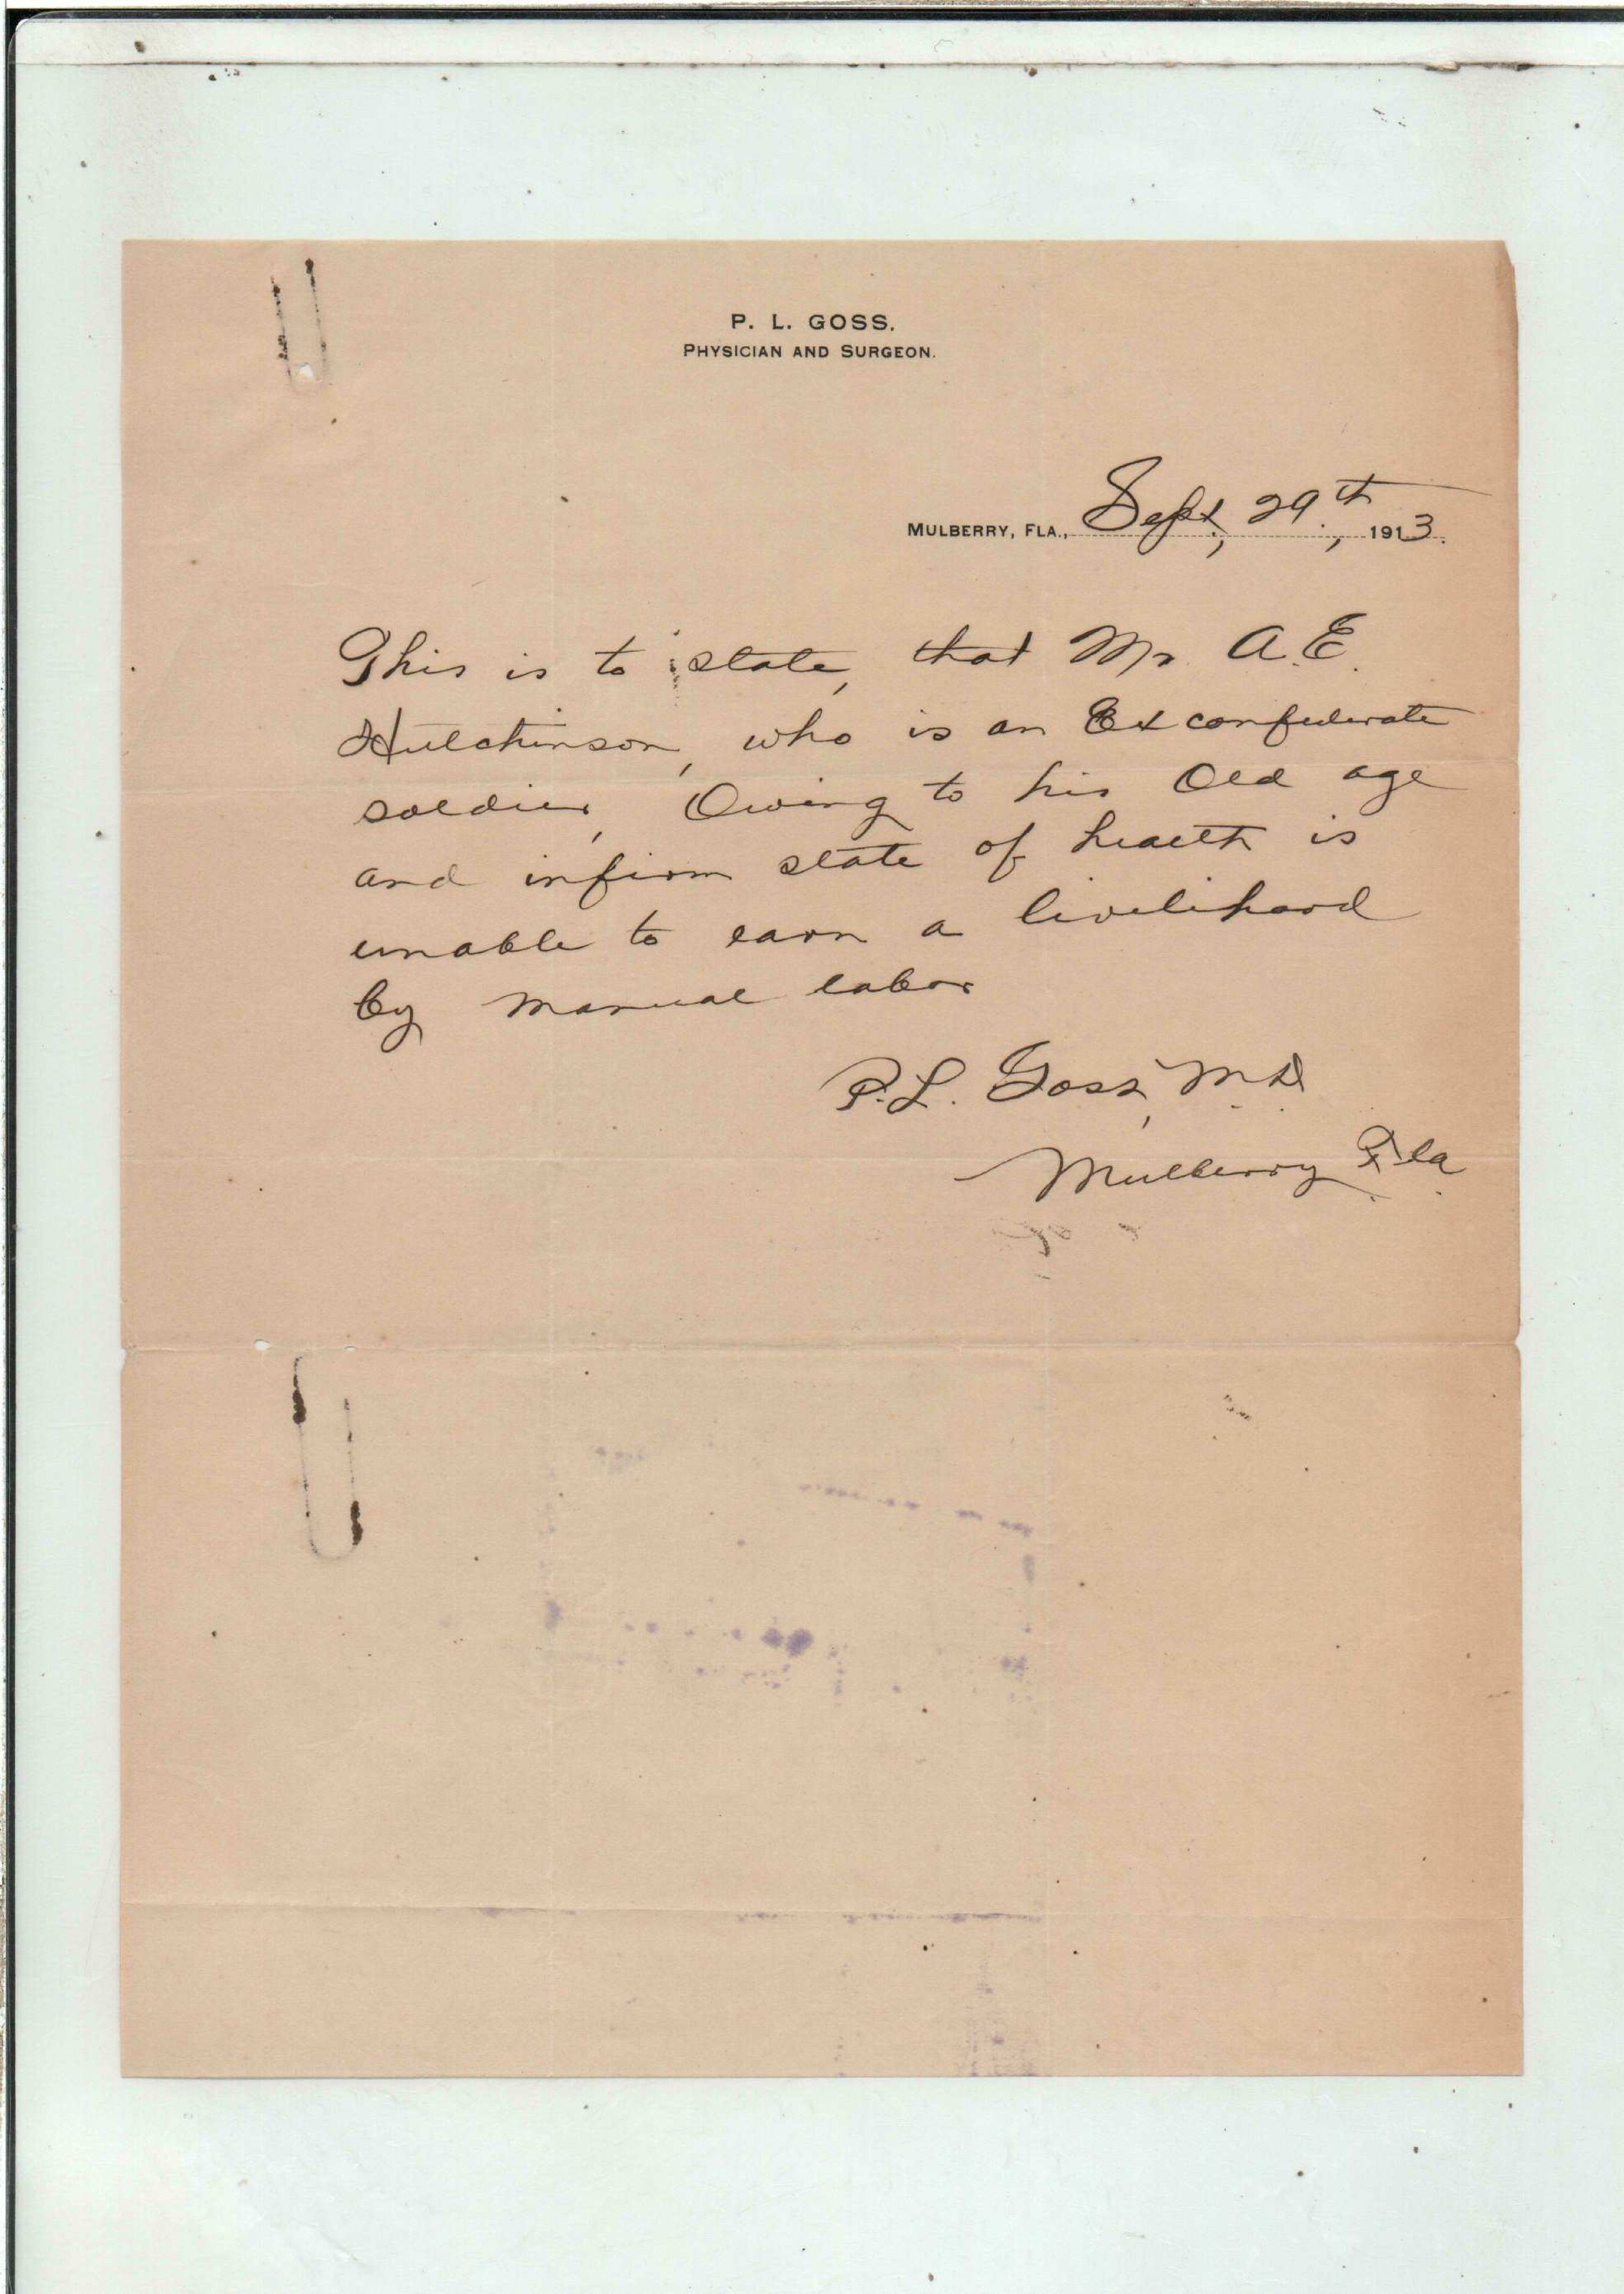 P. L. GOSS.
PHYSICIAN AND SURGEON.
MULBERRY, FLA., Sept, 29th, 1913.
This is to state, that Mr A.E.
Hutchinson, who is an Ex confederate
soldier, Owing to his Old age
and infirm state of health is
unable to earn a livelihood
by manual labor
P.L. Goss, M.D.
Mulberry Fla.